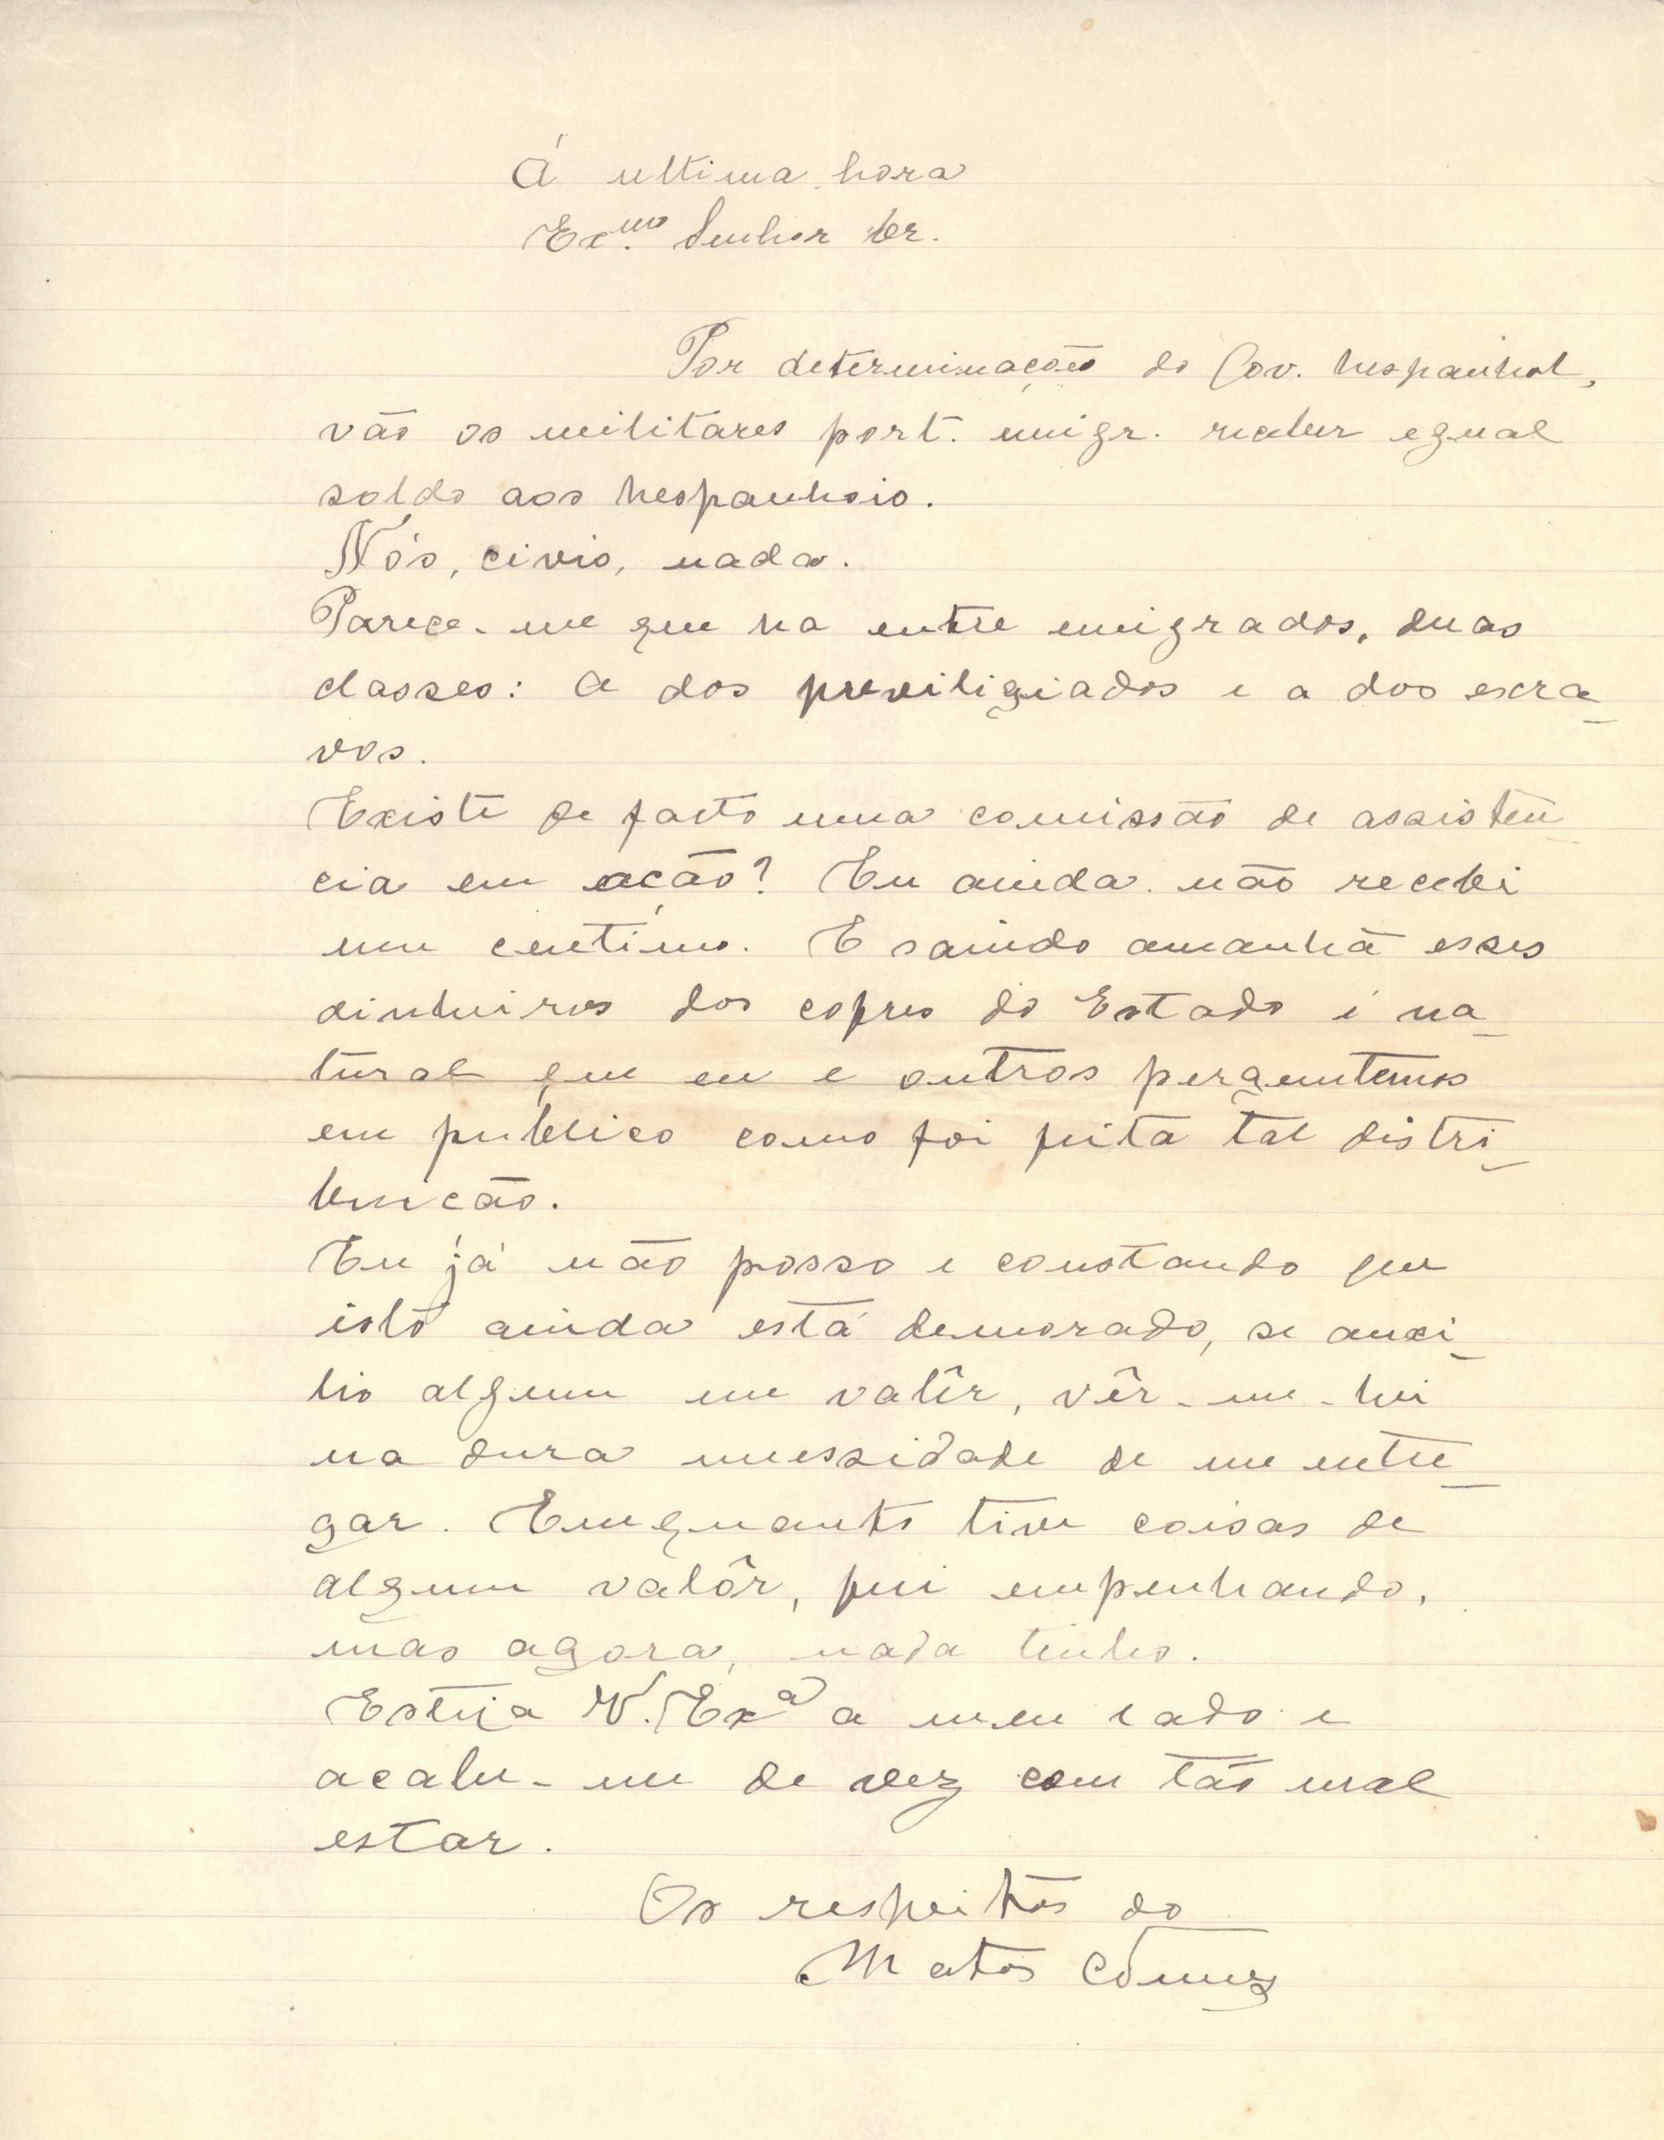 Á ultima hora
Ex.mo Senhor Dr.
Por determinação do Gov. hespanhol,
vão os militares port. emigr. receber egual
soldo aos hespanhois.
Nós, civis, nada.
Parece-me que ha entre emigrados, duas
classes: A dos previligiados e a dos escra-
vos.
Existe de facto uma comissão de assisten-
cia em ação? Eu ainda não recebi
um centimo. E saindo amanhã esses
dinheiros dos cofres do Estado é na-
tural que eu e outros perguntemos
em publico como foi feita tal distri-
buicão.
Eu já não posso e constando que
isto ainda está demorado, se auxi-
lio algum me valêr, vêr-me-hei
na dura necessidade de me entre-
gar. Emquanto tive coisas de
algum valôr, fui empenhando,
mas agora, nada tenho.
Esteja V. Exª a meu lado e
acabe-me de vez com tão mal
estar.
Os respeitos do
Matos Gomes